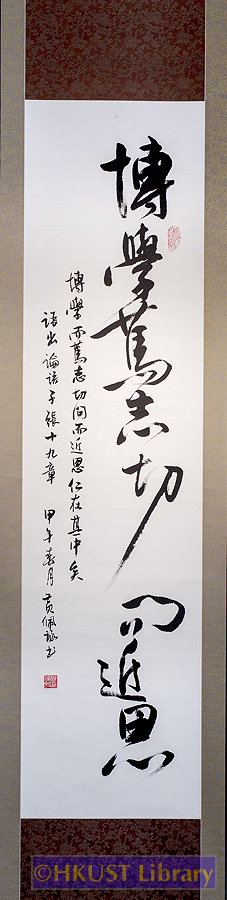 博學篤志切問近思
博學而篤志切問而近思仁在其中矣
語出論語子張十九章 甲午春月 黃佩 書
©HKUST Library